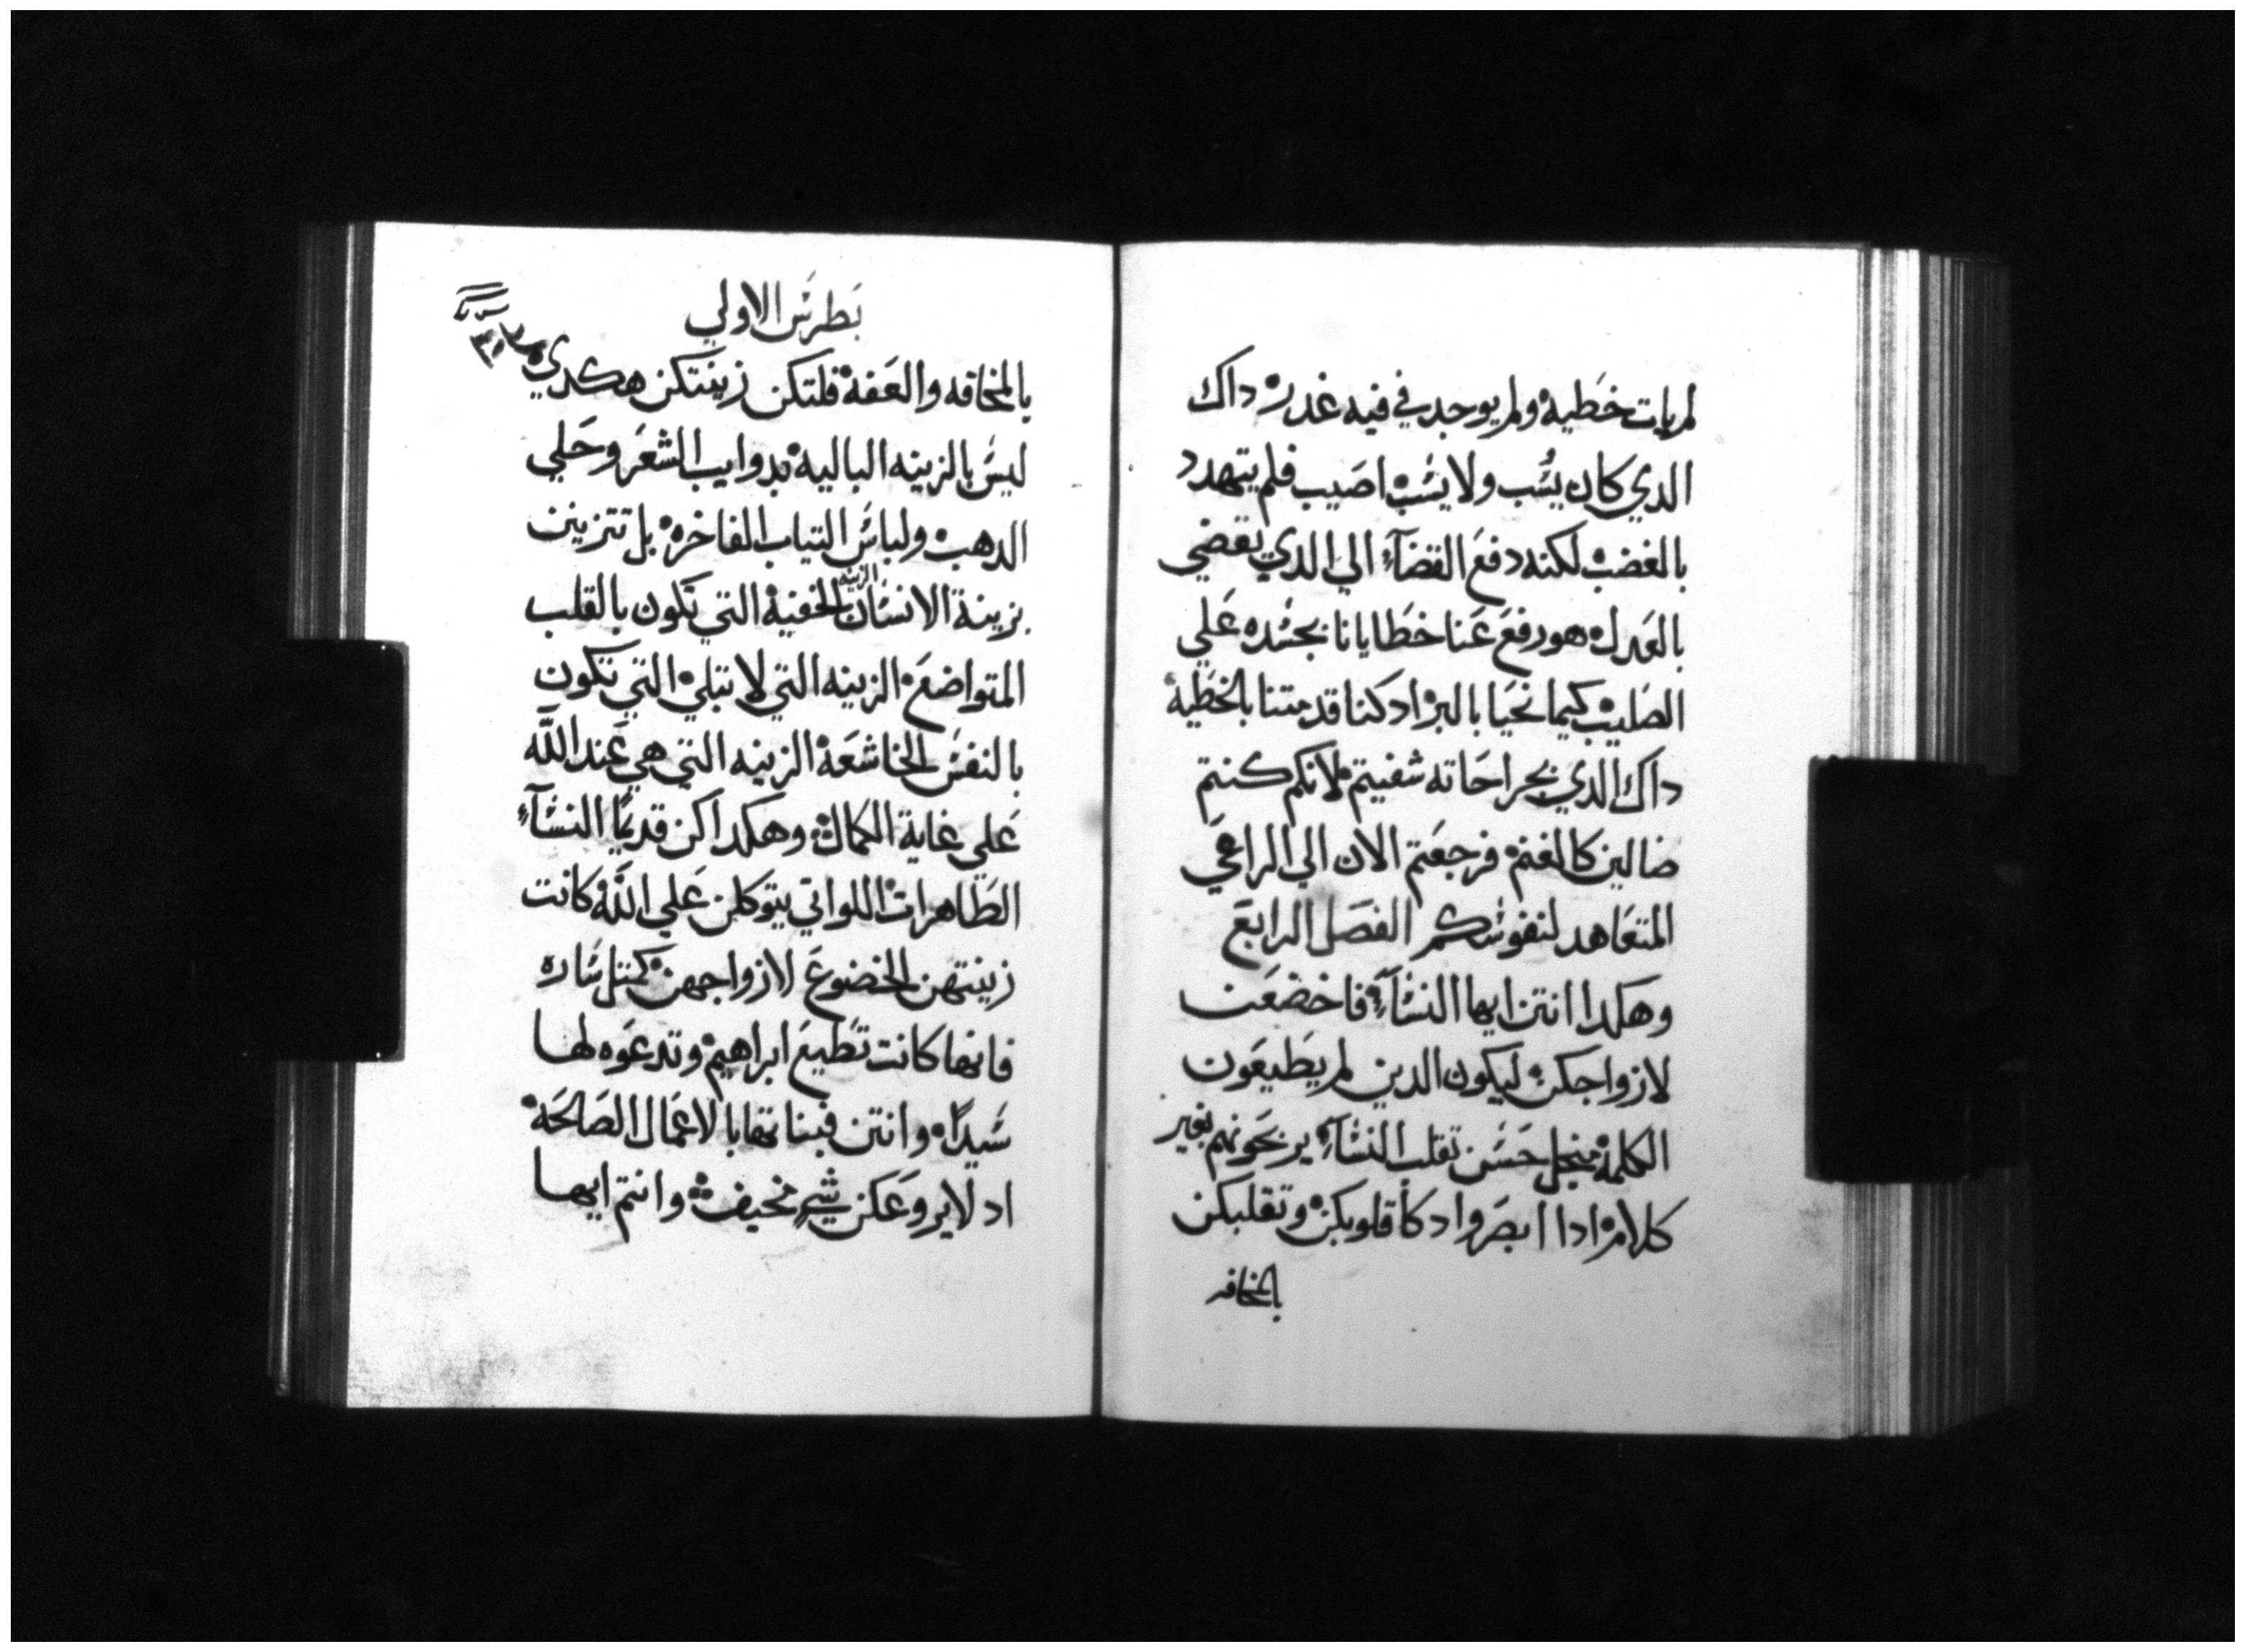 لم يات خطيه ولم يوجد في فيه غدر داك
الدي كان يسب ولا يسب اصيب فلم يتهدد
بالغضب لكنه دفع القضآء الي الدي يقضي
بالعدل هو رفع عنا خطايانا بجسده علي
الصليب كيما نحيا بالبر اد كنا قد متنا بالخطية
داك الدي بجراحاته شفيتم لانكم كنتم
ضالين كالغنم فرجعتم الان الي الراعي
المتعاهد لنفوسكم الفصل الرابع
وهكدا انتن ايها النسآء فاخضعن
لازواجكن ليكون الدين لم يطيعون
الكلمة منجل حسن تقلب النسآء يربحونهم بغير
كلام ادا ابصروا دكا قلوبكن وتقلبكن
بالمخافه
بطرس الاولي
بالمخافه والعفة فلتكن زينتكن هكدي
ليس بالزينه الباليه بدوايب الشعر وحلي
الدهب ولباس التياب الفاخره بل تتزين
الزينه
بزينة الانسان الخفية التي تكون بالقلب
المتواضع الزينه التي لا تبلي التي تكون
بالنفس الخاشعة الزينه التي هي عند الله
علي غاية الكمال وهكدا كن قديمًا النسآء
الطاهرات اللواتي يتوكلن علي الله كانت
زينتهن الخضوع لازواجهن كمتل ساره
فانها كانت تطيع ابراهيم وتدعوه لها
سيدًا وانتن فبناتها بالاعمال الصالحة
اد لا يروعكن شي مخيف وانتم ايها